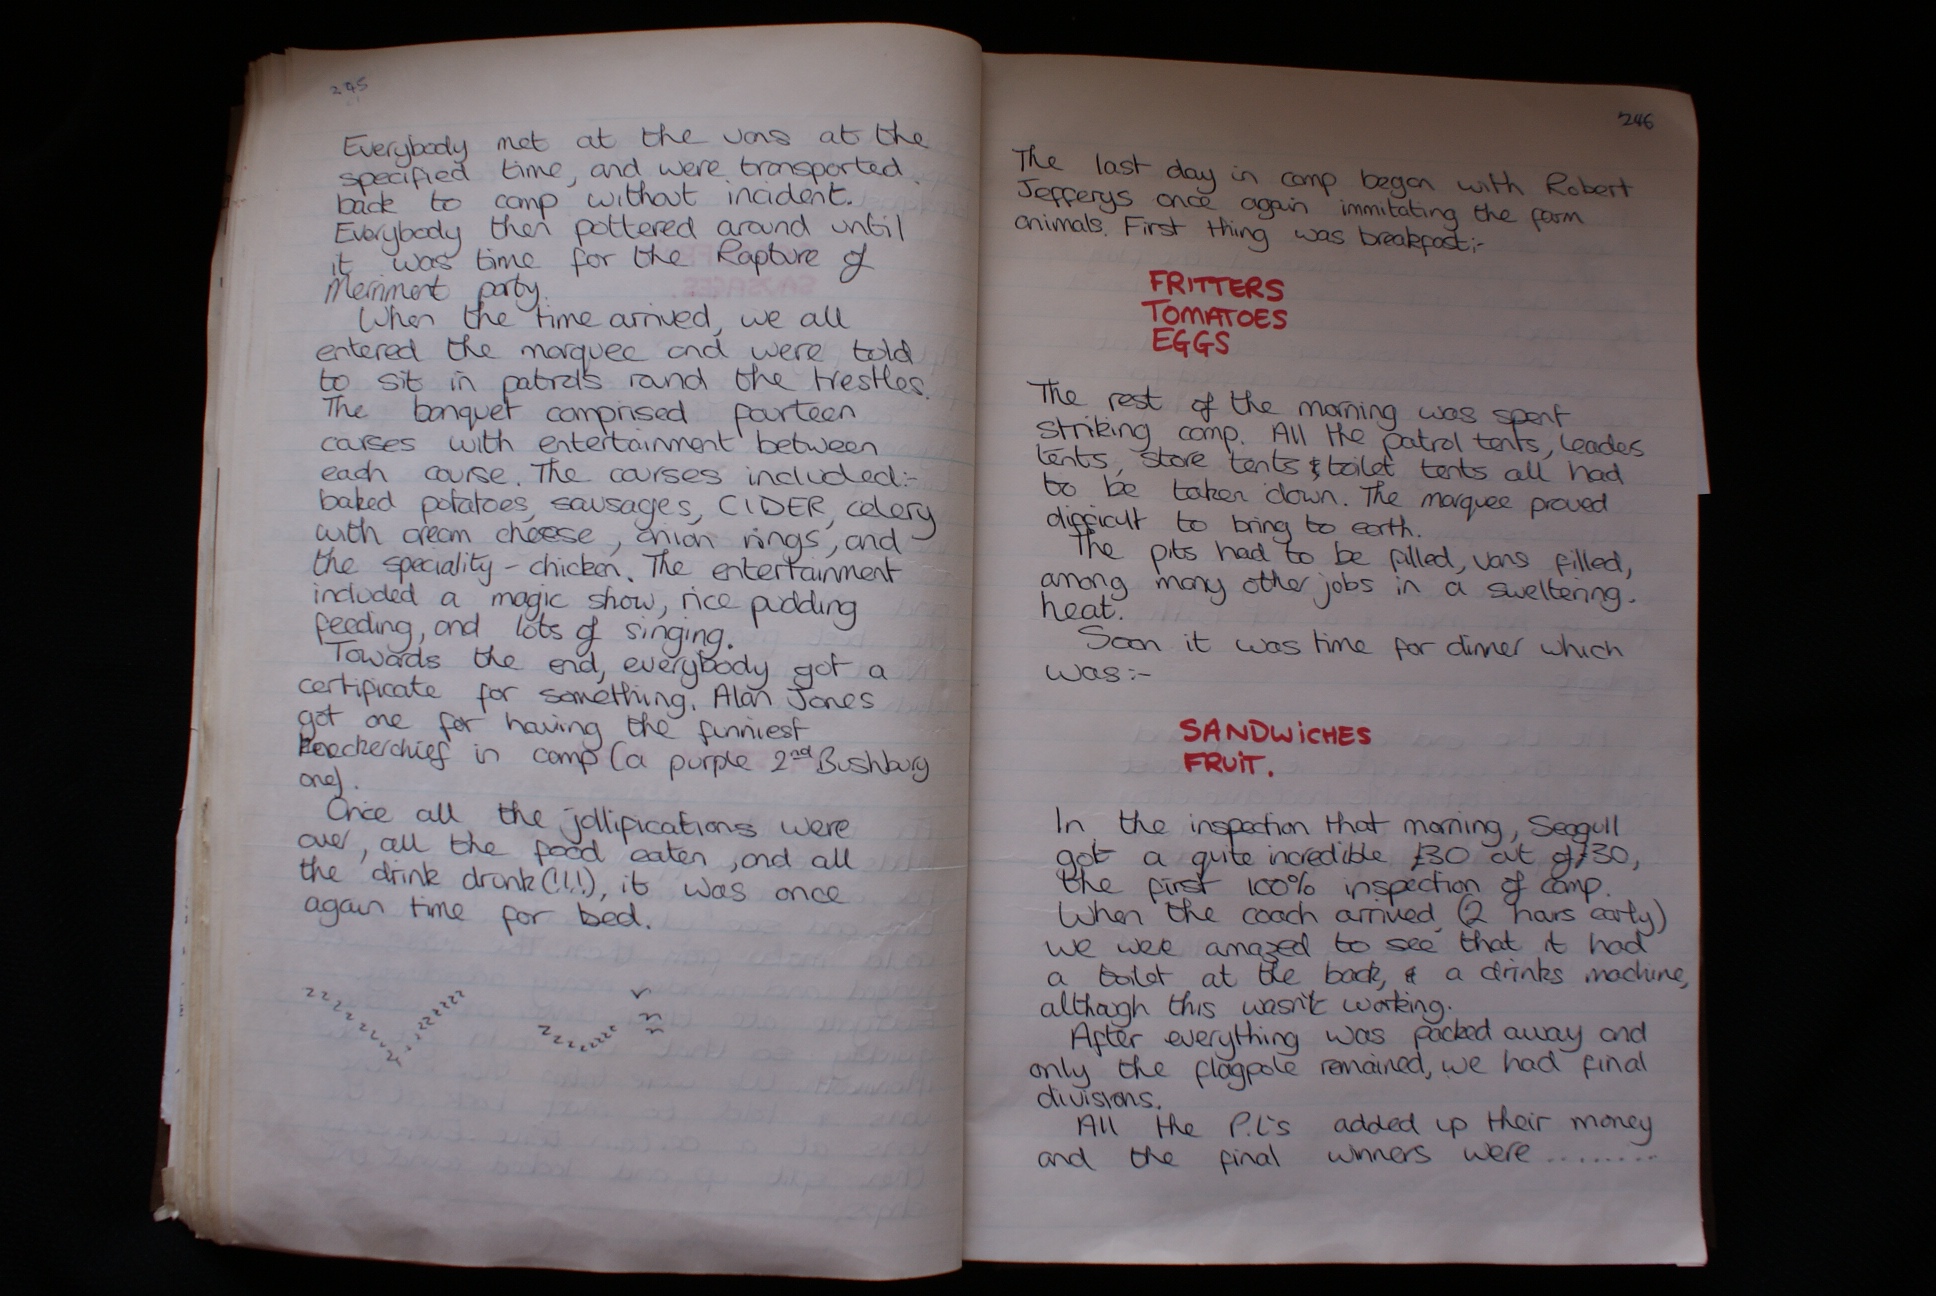 245
Everybody met at the vans at the
specified time, and were transported
back to camp without incident.
Everybody then pottered around until
it was time for the Rapture of
Merriment party.
When the time arrived, we all
entered the marquee and were told
to sit in patrols round the trestles.
The banquet comprised fourteen
courses with entertainment between
each course. The courses included:-
baked potatoes, sausages, CIDER, celery
with cream cheese, onion rings, and
the speciality - chicken. The entertainment
included a magic show, rice pudding
feeding, and lots of singing.
Towards the end, everybody got a
certificate for something. Alan Jones
got one for having the funniest
neckerchief in camp (a purple 2nd Bushbury
one).
Once all the jollifications were
over, all the food eaten, and all
the drink drank(!!!), it was once
again time for bed.
zzzzzzzzzzzzzzzzzz zzzzzzzzzz
246
The last day in camp began with Robert
Jefferys once again immitating the farm
animals. First thing was breakfast:-
FRITTERS
TOMATOES
EGGS
The rest of the morning was spent
striking camp. All the patrol tents, leaders
tents, store tents & toilet tents all had
to be taken down. The marquee proved
difficult to bring to earth.
The pits had to be filled, vans filled,
among many other jobs in a sweltering
heat.
Soon it was time for dinner which
was:-
SANDWiCHES
FRUiT.
In the inspection that morning, Seagull
got a quite incredible £30 out of £30,
the first 100% inspection of camp.
When the coach arrived (2 hours early)
we were amazed to see that it had
a toilet at the back, & a drinks machine,
although this wasn't working.
After everything was packed away and
only the flagpole remained, we had final
divisions.
All the P.L's added up their money
and the final winners were ........